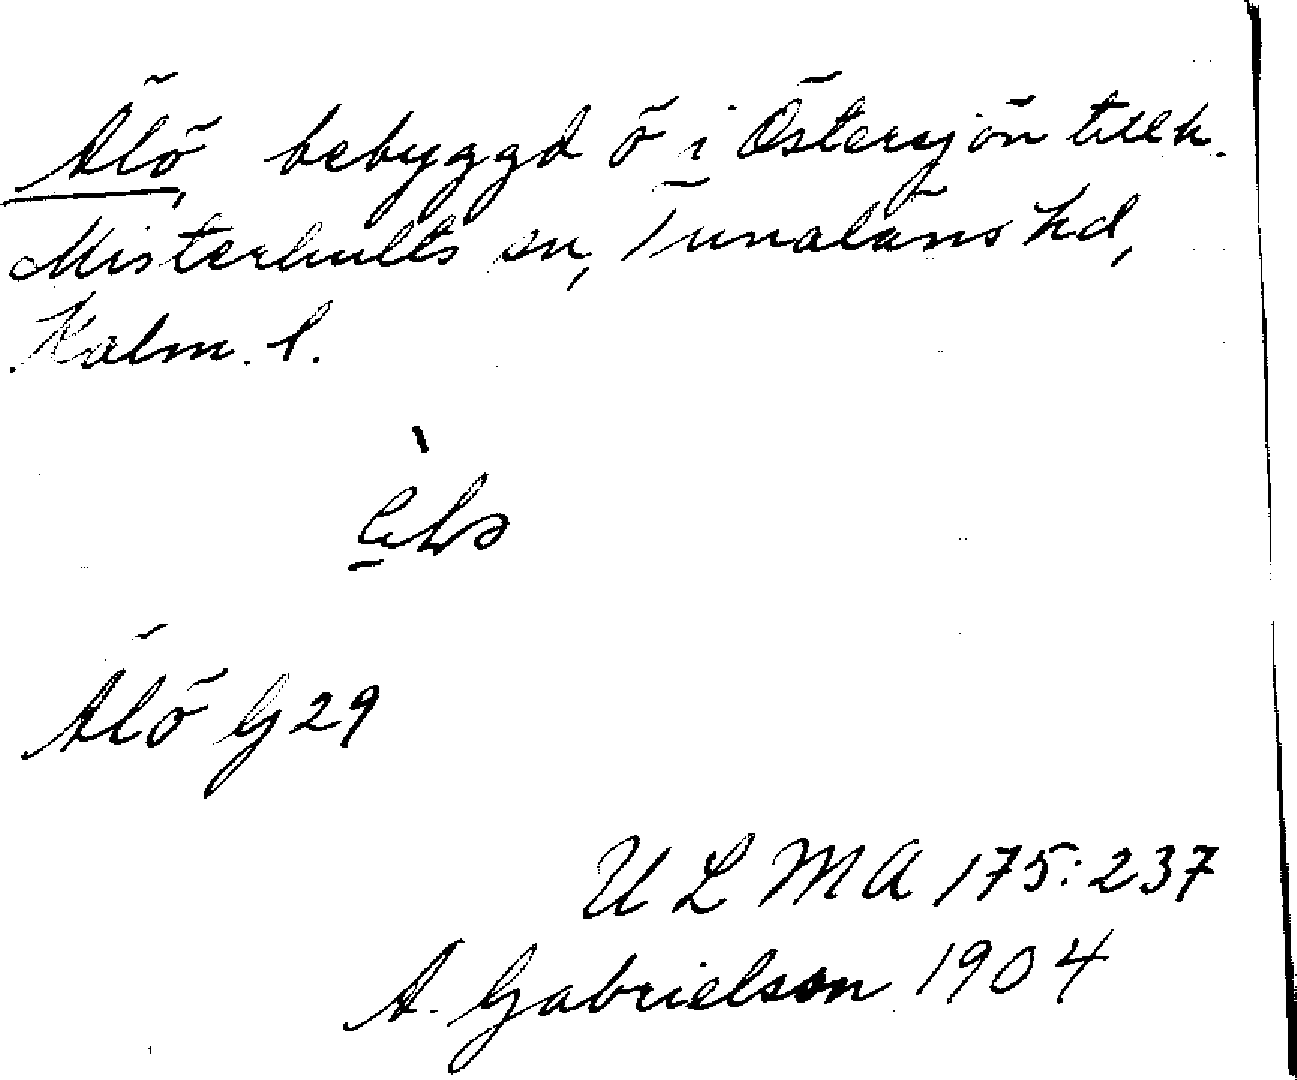 Älö, bebyggd ö i Östersjön tillh.
Misterhults sn, Tunaläns hd,
Kalm. l.
Älö G 29
ULMA 175:237
A. Gabrielson 1904